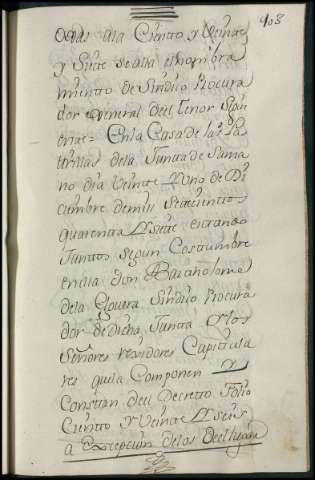 108
Odas ala Ciento y Veinte
y Siete se alla el nombra
miento de Sindico Procura
dor General del tenor Siguie
ente = En la Casa de las Pa
rrillas dela Junta de Sama
no dia Veinte y Uno de Di
ciembre de mill Setecientos
quarenta y Siete estando
Juntos Segun Costumbre
en dia don Bartholome
dela Sindico Procura
dor de dicha Junta y los
Señores rexidores Capitula
res que la Componen y
Constan del Decreto Folio
Ciento y Veinte y Seis
a Excepcion delos Del lugar